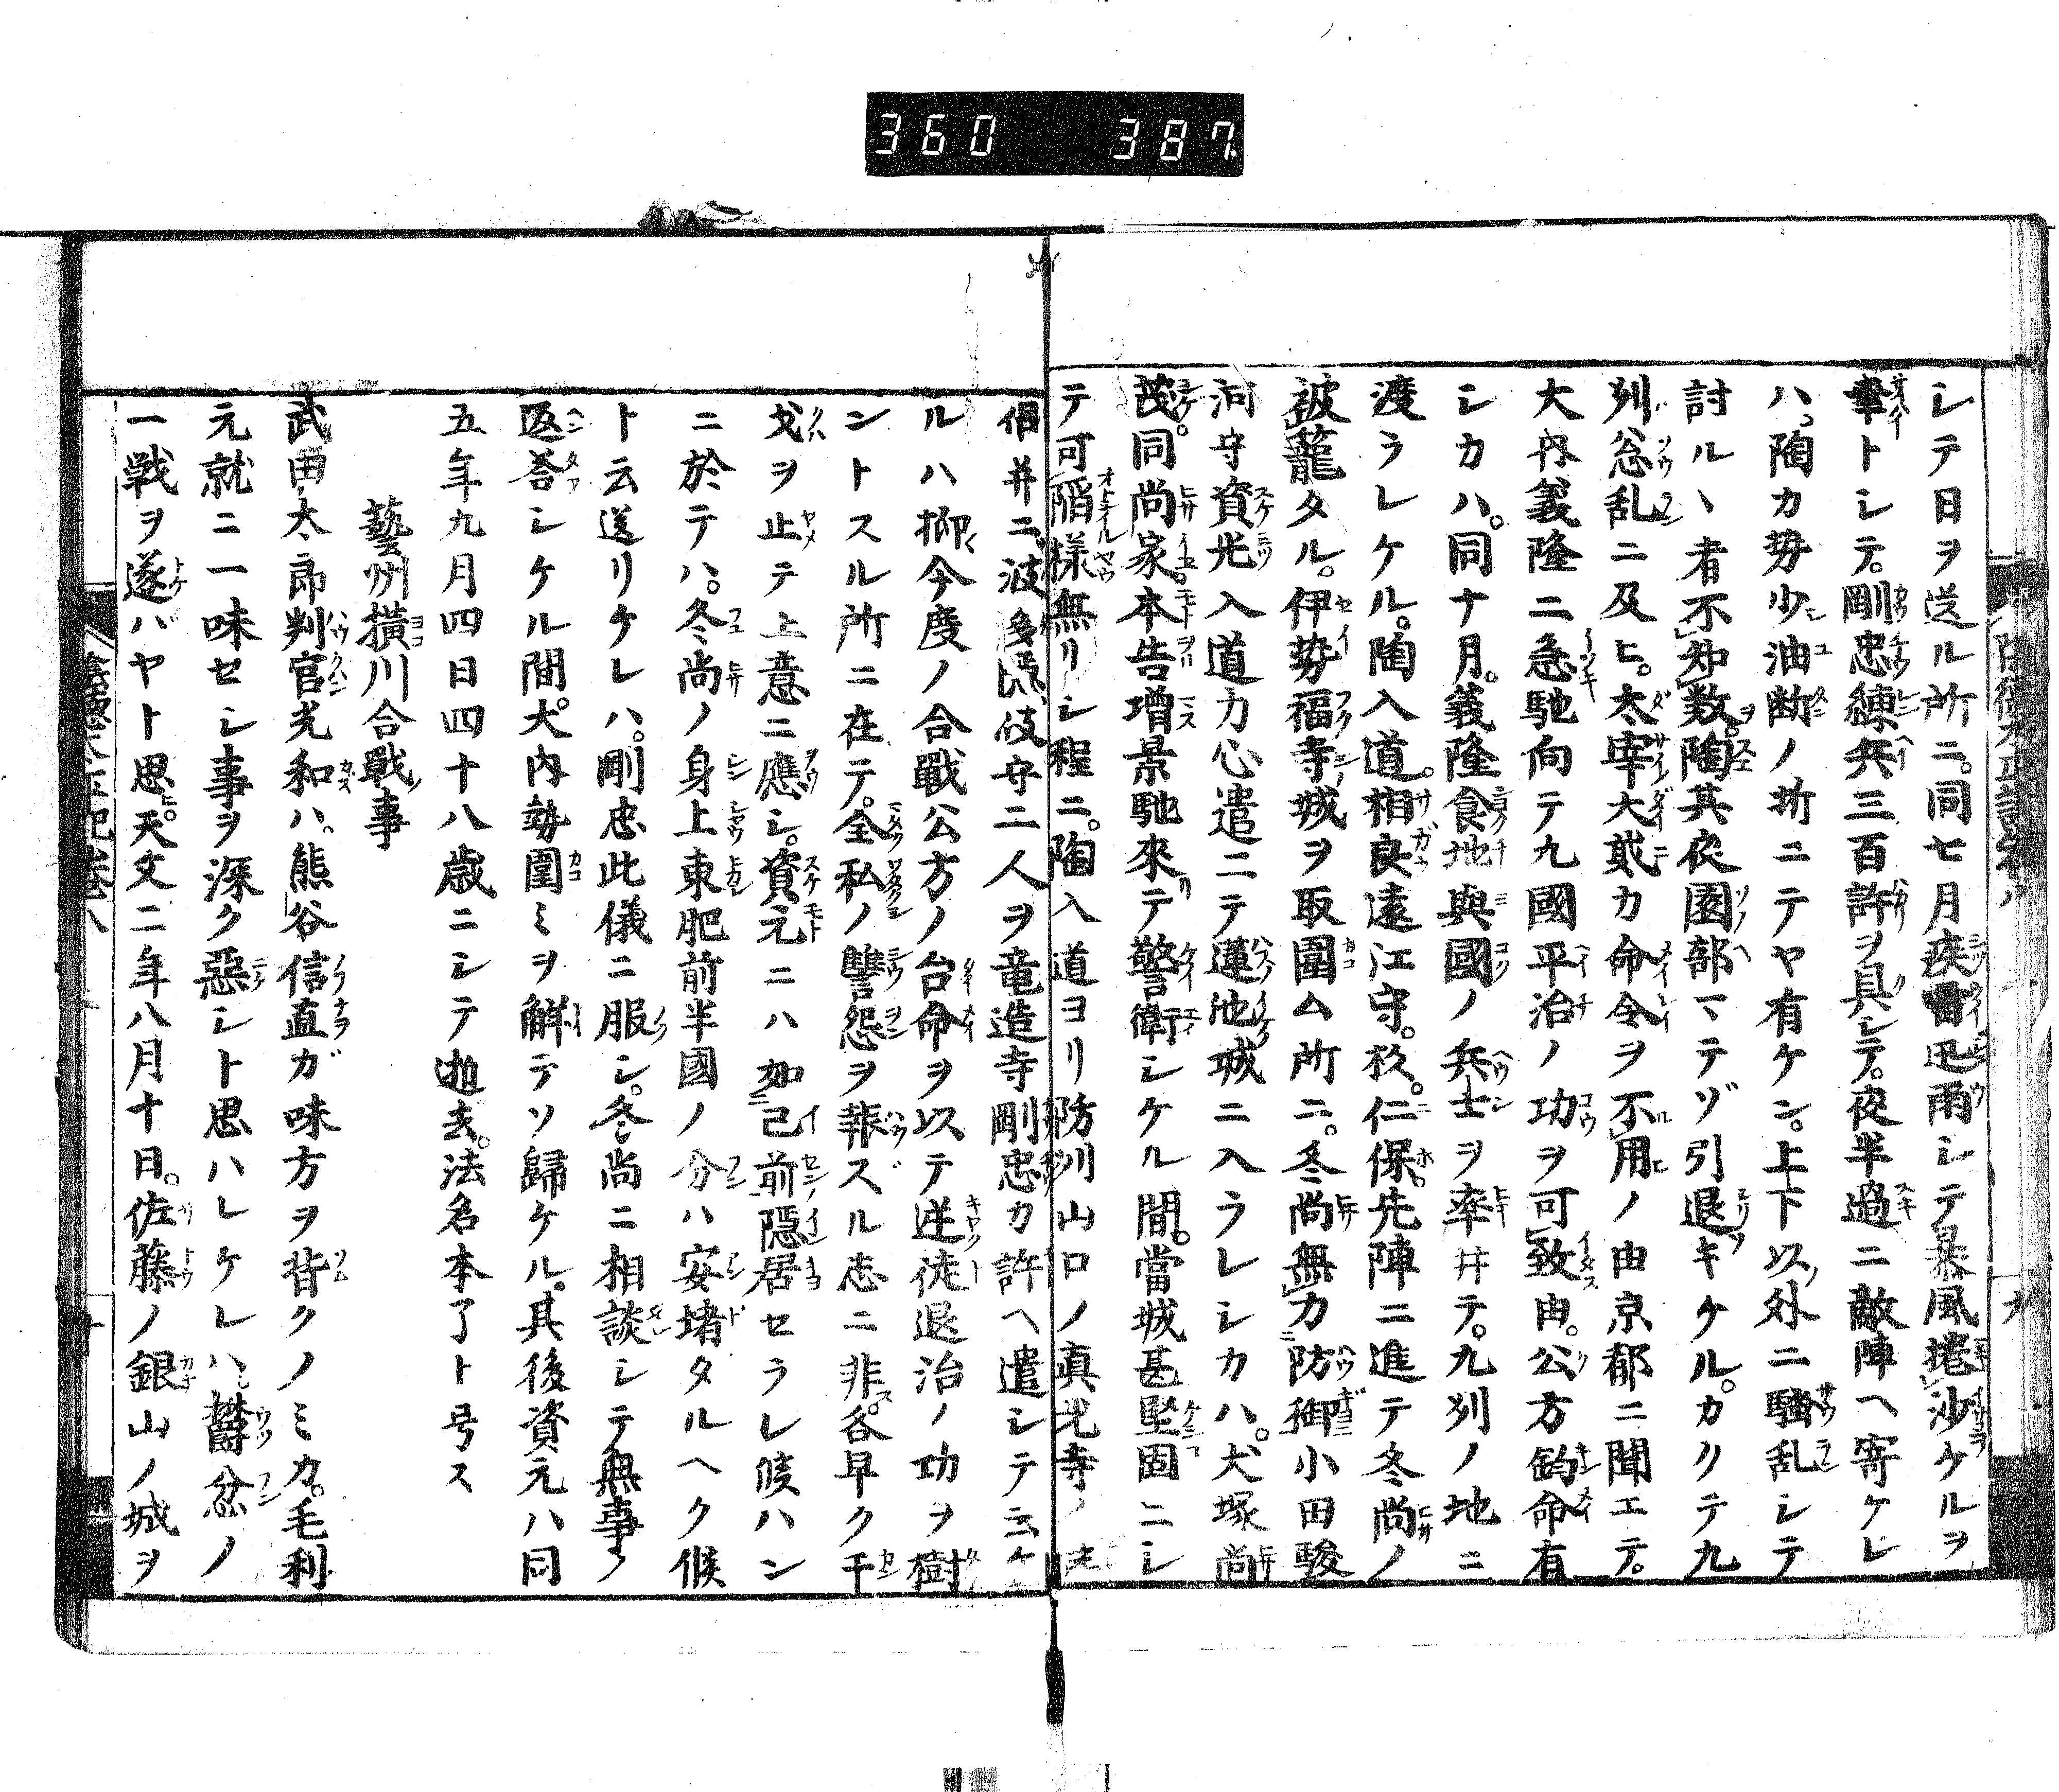 360 387
シテ日ヲ送ル所ニ。同七月疾雷迅雨シテ暴風捲沙ケルヲ
幸トシテ。剛忠練兵三百許ヲ具シテ。夜半過ニ敵陣ヘ寄ケレ
ハ。陶カ勢少油断ノ折ニテヤ有ケン。上下以外ニ騒乱シテ
討ルヽ者不知数。陶其夜園部マテゾ引退キケル。カクテ九
列忩乱ニ及ヒ。太宰大貳カ命令ヲ不用ノ由京都ニ聞エテ。
大内義隆ニ急馳向テ九國平治ノ功ヲ可致由。公方鈞命有
シカハ。同十月。義隆食地與國ノ兵士ヲ率井テ。九列ノ地ニ
渡ラレケル。陶入道。相良遠江守。杉。仁保。先陣ニ進テ冬尚ノ
被籠タル。伊勢福寺城ヲ取圍ム所ニ。冬尚無力防御小田駿
河守資光入道カ心遣ニテ蓮池城ニ入ラレシカハ。犬塚尚
茂。同尚家。本告増景馳來テ警衛シケル間。當城甚堅固ニシ
テ可陥様無リシ程ニ。陶入道ヨリ防列山口ノ真光寺ノ
伯并ニ。波多壱岐守二人ヲ竜造寺剛忠カ許ヘ遣シテ云ケ
ルハ抑今度ノ合戰公方ノ台命ヲ以テ逆徒退治ノ功ヲ樹
ントスル所ニ在テ。全私ノ讐怨ヲ報ズル志ニ非ス。各早ク干
戈ヲ止テ上意ニ應シ。資元ニハ如己前隠居セラレ候ハン
ニ於テハ。冬尚ノ身上東肥前半國ノ分ハ安堵タルヘク候
ト云送リケレハ。剛忠此儀ニ服シ。冬尚ニ相談シテ無事ノ
返荅シケル間。大内勢圍ミヲ觧テソ歸ケル。其後資元ハ同
五年九月四日四十八歳ニシテ逝去。法名本了ト号ス
藝州横川合戰事
武田太郎判官光和ハ。熊谷信直ガ味方ヲ背クノミカ。毛利
元就ニ一味セシ事ヲ深ク惡シト思ハレケレハ。欝忿ノ
一戦ヲ遂バヤト思ヒ。天文二年八月十日。佐藤ノ銀山ノ城ヲ